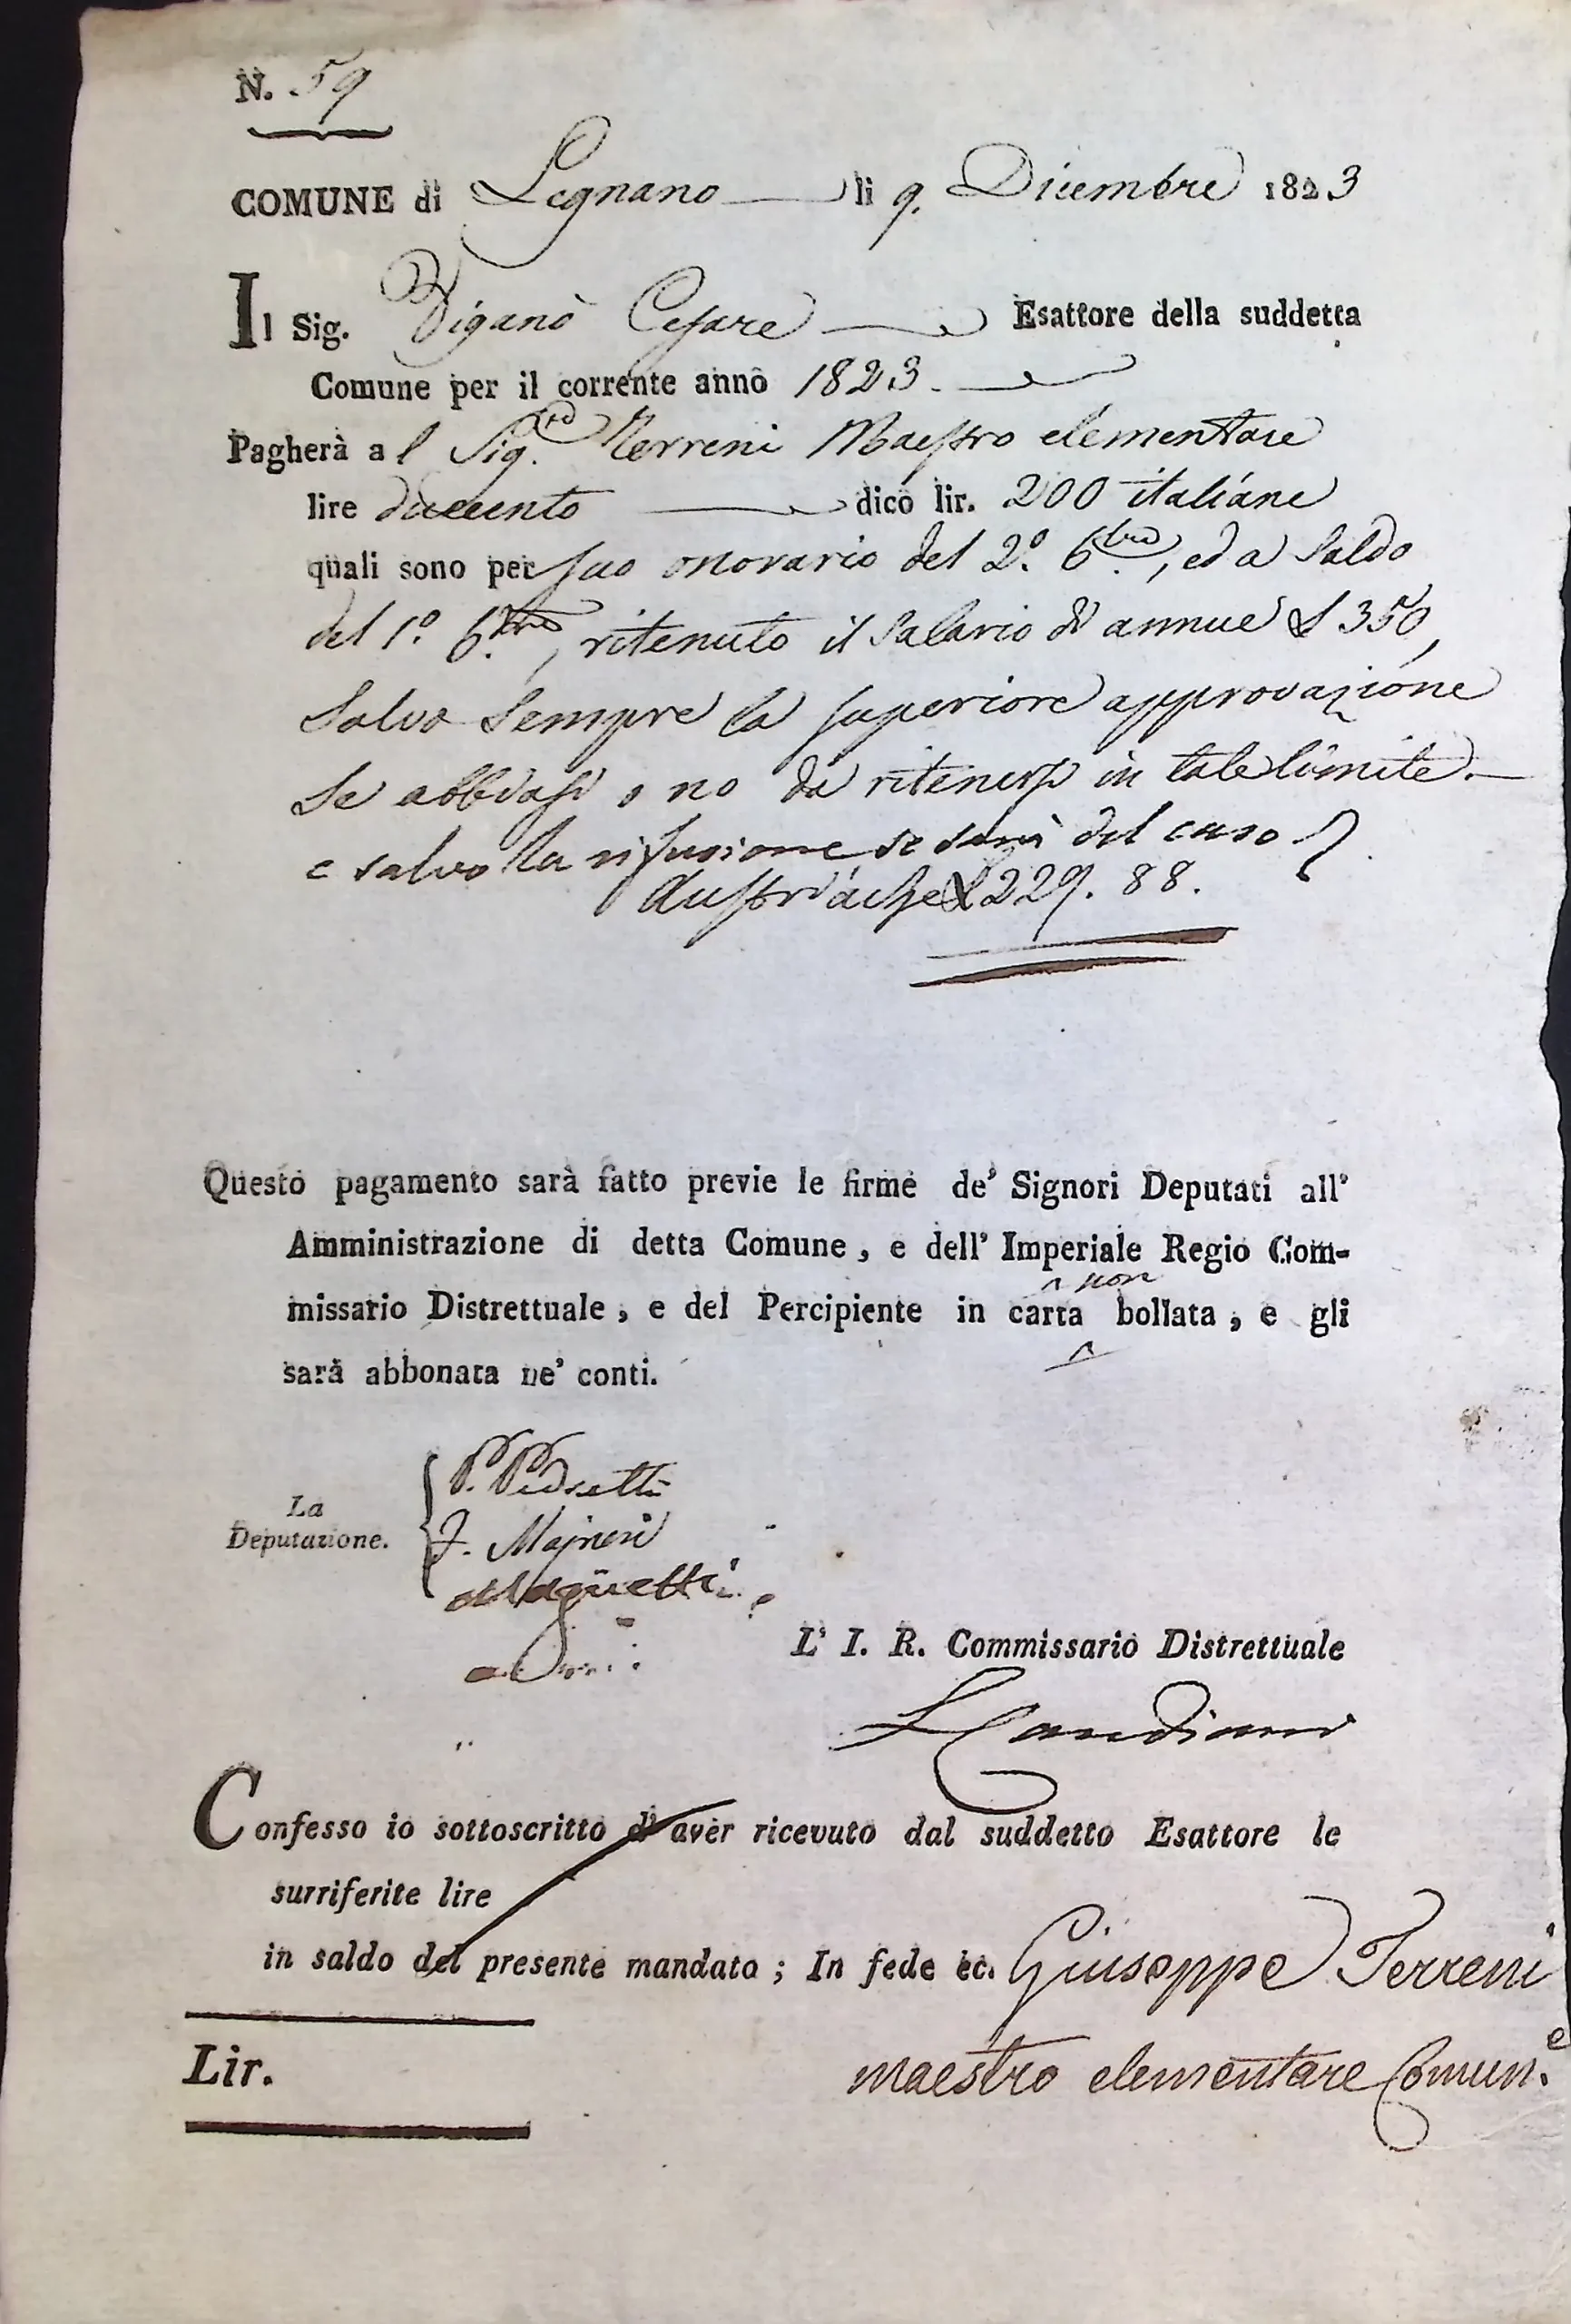 N. 59
COMUNE di Legnano li 9. Dicembre 1823
Il Sig. Viganò Cesare Esattore della suddetta
Comune per il corrente anno 1823.
Pagherà al Sig.re Terreni Maestro elementare
lire duecento dico lir. 200 italiane
quali sono per suo onorario del 2.º 6.tre, ed a saldo
del 1.º 6.tre, ritenuto il salario di annue £ 350,
salva sempre la superiore approvazione
se abbiasi o no da ritenersi in tale limite.
e salvo la rifusione se sarà del caso
Austriache £ 229. 88.
Questo pagamento sarà fatto previe le firme de' Signori Deputati all'
Amministrazione di detta Comune, e dell' Imperiale Regio Com-
missario Distrettuale, e del Percipiente in carta non bollata, e gli
sarà abbonata ne' conti.
La
Deputazione.
P. Pedretti
J. Majneri
L' I. R. Commissario Distrettuale
Candiani
Confesso io sottoscritto d'aver ricevuto dal suddetto Esattore le
surriferite lire
in saldo del presente mandato; In fede ec. Giuseppe Terreni
maestro elementare Comun.e
Lir.